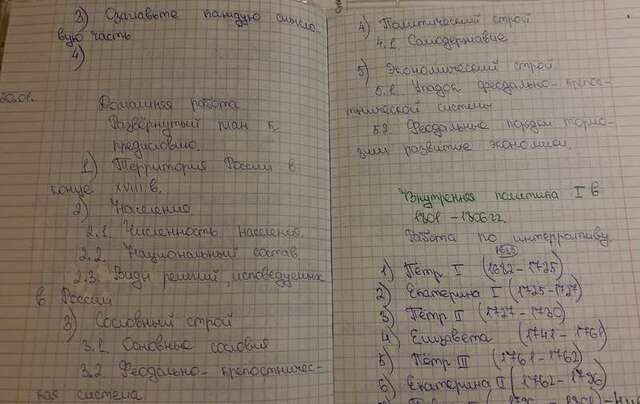 3) Озаглавьте каждую смысло-
вую часть
4)
30.01.
Домашняя работа
Развёрнутый план к
предисловию.
1) Территория России в
конце XVIII в.
2) Население
2.1. Численность населения
2.2. Национальный состав
2.3. Виды религий, исповедуемых
в России
3) Сословный строй
3.1 Основные сословия
3.2 Феодально-крепостничес-
кая система
4) Политический строй
4.1 Самодержавие
5) Экономический строй
5.1 Упадок феодально-крепос-
тнической системы
5.2 Феодальные порядки тормо-
зили развитие экономики.
Внутренняя политика I в
1801 – 1806 гг.
Работа по интерактиву
1) Пётр I (1682 – 1725)
2) Екатерина I (1725 – 1727)
3) Пётр II (1727 – 1730)
4) Елизавета (1741 – 1761)
5) Пётр III (1761 – 1762)
6) Екатерина II (1762 – 1796)